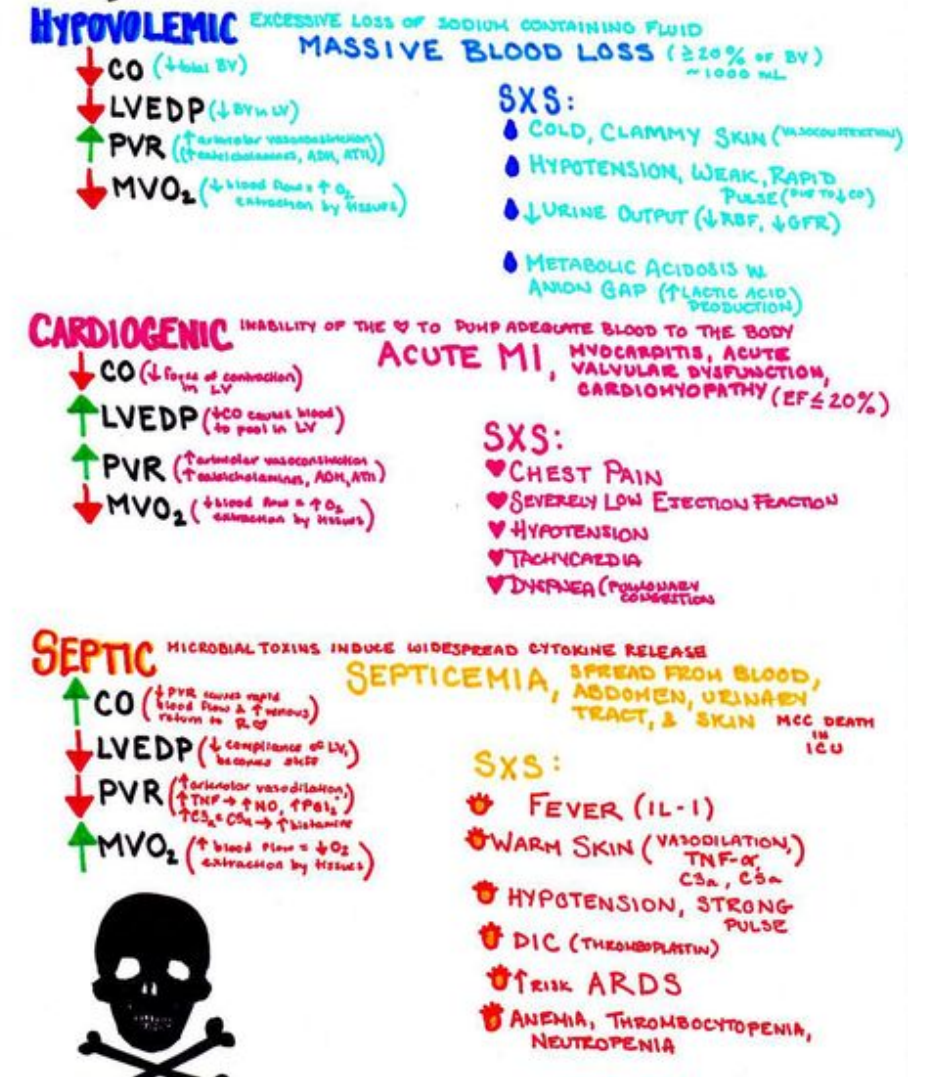 HYPOVOLEMIC EXCESSIVE LOSS OF SODIUM CONTAINING FLUID
MASSIVE BLOOD LOSS (≥20% OF BV)
~1000 mL
↓CO (↓total BV)
↓LVEDP (↓BV in LV)
↑PVR (↑arteriolar vasoconstriction)
(↑catelcholamines, ADH, ATII))
↓MVO₂ (↓blood flow = ↑O₂
extraction by tissues)
SXS:
COLD, CLAMMY SKIN (VASOCONSTRICTION)
HYPOTENSION, WEAK, RAPID
PULSE (DUE TO ↓CO)
↓URINE OUTPUT (↓RBF, ↓GFR)
METABOLIC ACIDOSIS W.
ANION GAP (↑LACTIC ACID
PRODUCTION)
CARDIOGENIC INABILITY OF THE ♡ TO PUMP ADEQUATE BLOOD TO THE BODY
ACUTE MI, MYOCARDITIS, ACUTE
VALVULAR DYSFUNCTION,
CARDIOMYOPATHY (EF≤20%)
↓CO (↓force of contraction)
in LV
↑LVEDP (↓CO causes blood
to pool in LV)
↑PVR (↑arteriolar vasoconstriction
↑catelcholamines, ADH, ATII)
↓MVO₂ (↓blood flow = ↑O₂
extraction by tissues)
SXS:
♥CHEST PAIN
♥SEVERELY LOW EJECTION FRACTION
♥HYPOTENSION
♥TACHYCARDIA
♥DYSPNEA (PULMONARY
CONGESTION
SEPTIC MICROBIAL TOXINS INDUCE WIDESPREAD CYTOKINE RELEASE
SEPTICEMIA, SPREAD FROM BLOOD,
ABDOMEN, URINARY
TRACT, & SKIN MCC DEATH
IN
ICU
↑CO (↓PVR causes rapid
blood flow & ↑venous
return to R♡)
↓LVEDP (↓compliance of LV,
becomes stiff)
↓PVR (↑arteriolar vasodilation,
↑TNF→↑NO, ↑PGI₂
↑C3a & C5a→↑histamine
↑MVO₂ (↑blood flow = ↓O₂
extraction by tissues)
SXS:
FEVER (IL-1)
WARM SKIN (VASODILATION,)
TNF-α,
C3a, C5a
HYPOTENSION, STRONG
PULSE
DIC (THROMBOPLASTIN)
↑RISK ARDS
ANEMIA, THROMBOCYTOPENIA,
NEUTROPENIA